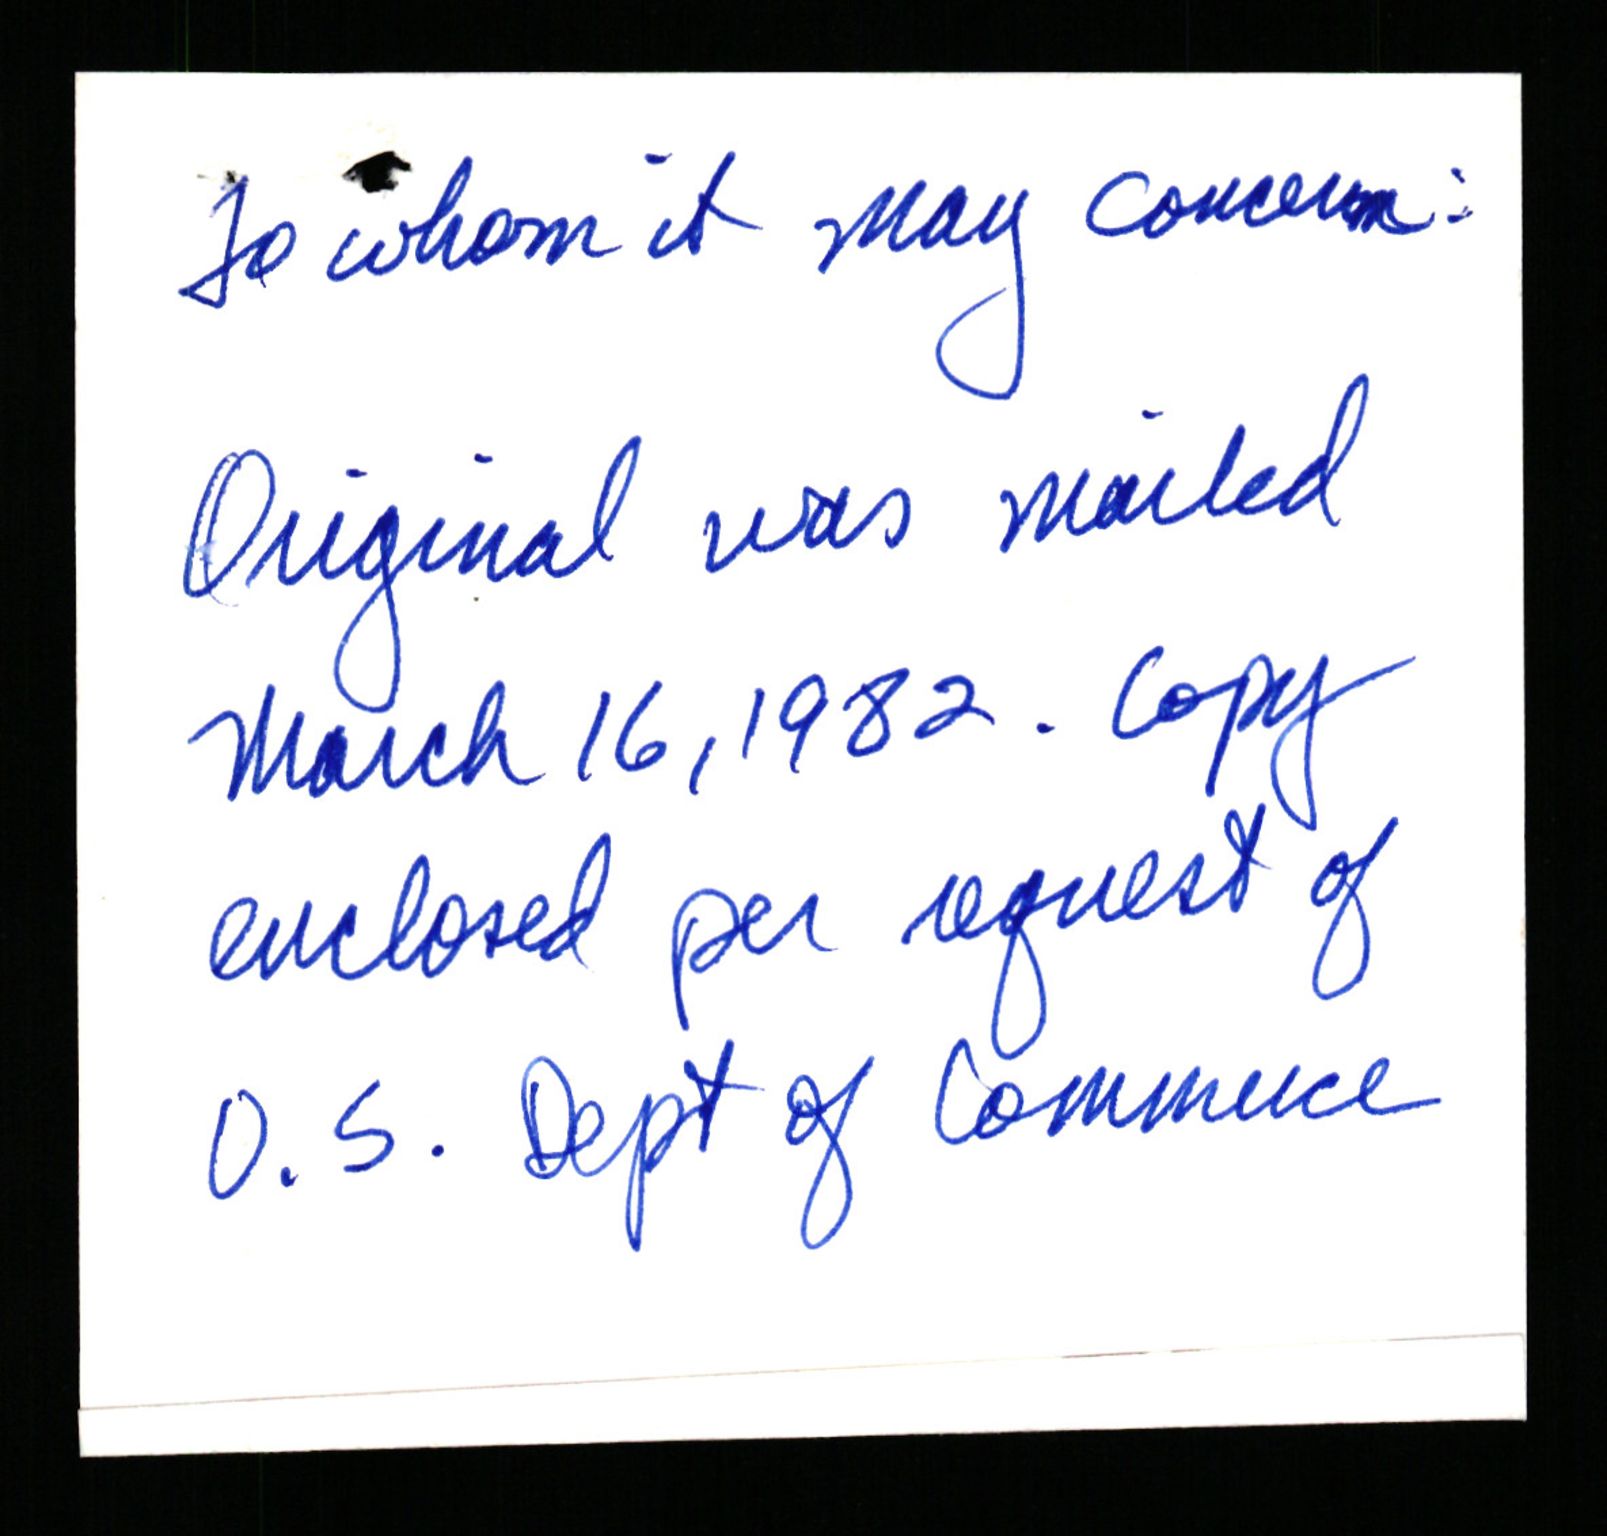 To whom it may concern:
Original was mailed
March 16, 1982. Copy
enclosed per request of
U.S. Dept of Commerce